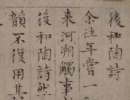 後和陶詩
余注年嘗一
來河朔觸事
後和陶詩以
韻不復用其